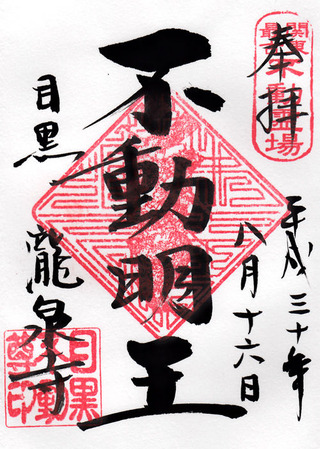 奉拝
関東最古不動霊場
平成三十年
八月十六日
不動明王
目黒
瀧泉寺
目黒不動尊印